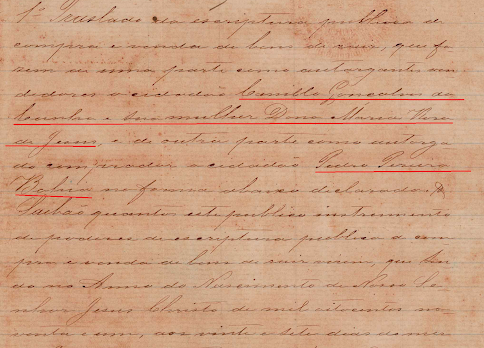 1º Traslado da escriptura publica de
compra e venda de bens de raiz, que fa
zem de uma parte como outorgantes ven
dedores o cidadão Camillo Gonçalves da
Cunha e sua mulher Dona Maria Rosa
de Jesus, e de outra parte como outorga
do comprador o cidadão Pedro Pereira
Bahia na forma abaixo declarada
Saibão quantos este publico instrumento
de poderes de escriptura publica de com
pra e venda de bens de raiz virem, que sen
do no Anno do Nascimento de Nosso Se
nhor Jesus Christo de mil oitocentos no
venta e um, aos vinte e sete dias do mez